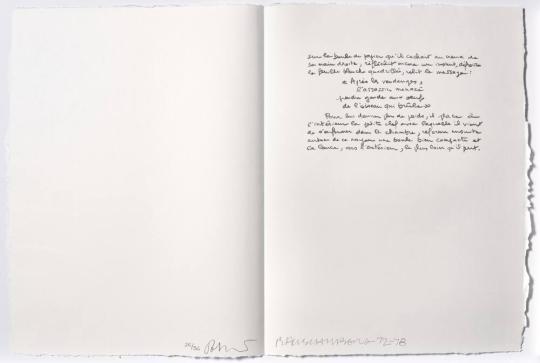 sur la boule de papier qu'il cachait au creux de
sa main droite, réfléchit encore un instant, défroisse
la feuille blanche quadrillée, relit le message :
« Après les vendanges,
l'assassin menacé
prendra garde aux œufs
de l'oiseau qui brûle. »
Pour lui donner plus de poids, il place à
l'intérieur la petite clef avec laquelle il vient
de s'enfermer dans la chambre, reforme ensuite
autour de ce noyau une boule bien compacte et
la lance, vers l'extérieur, le plus loin qu'il peut.
26/36 RAUSCHENBERG 72-78